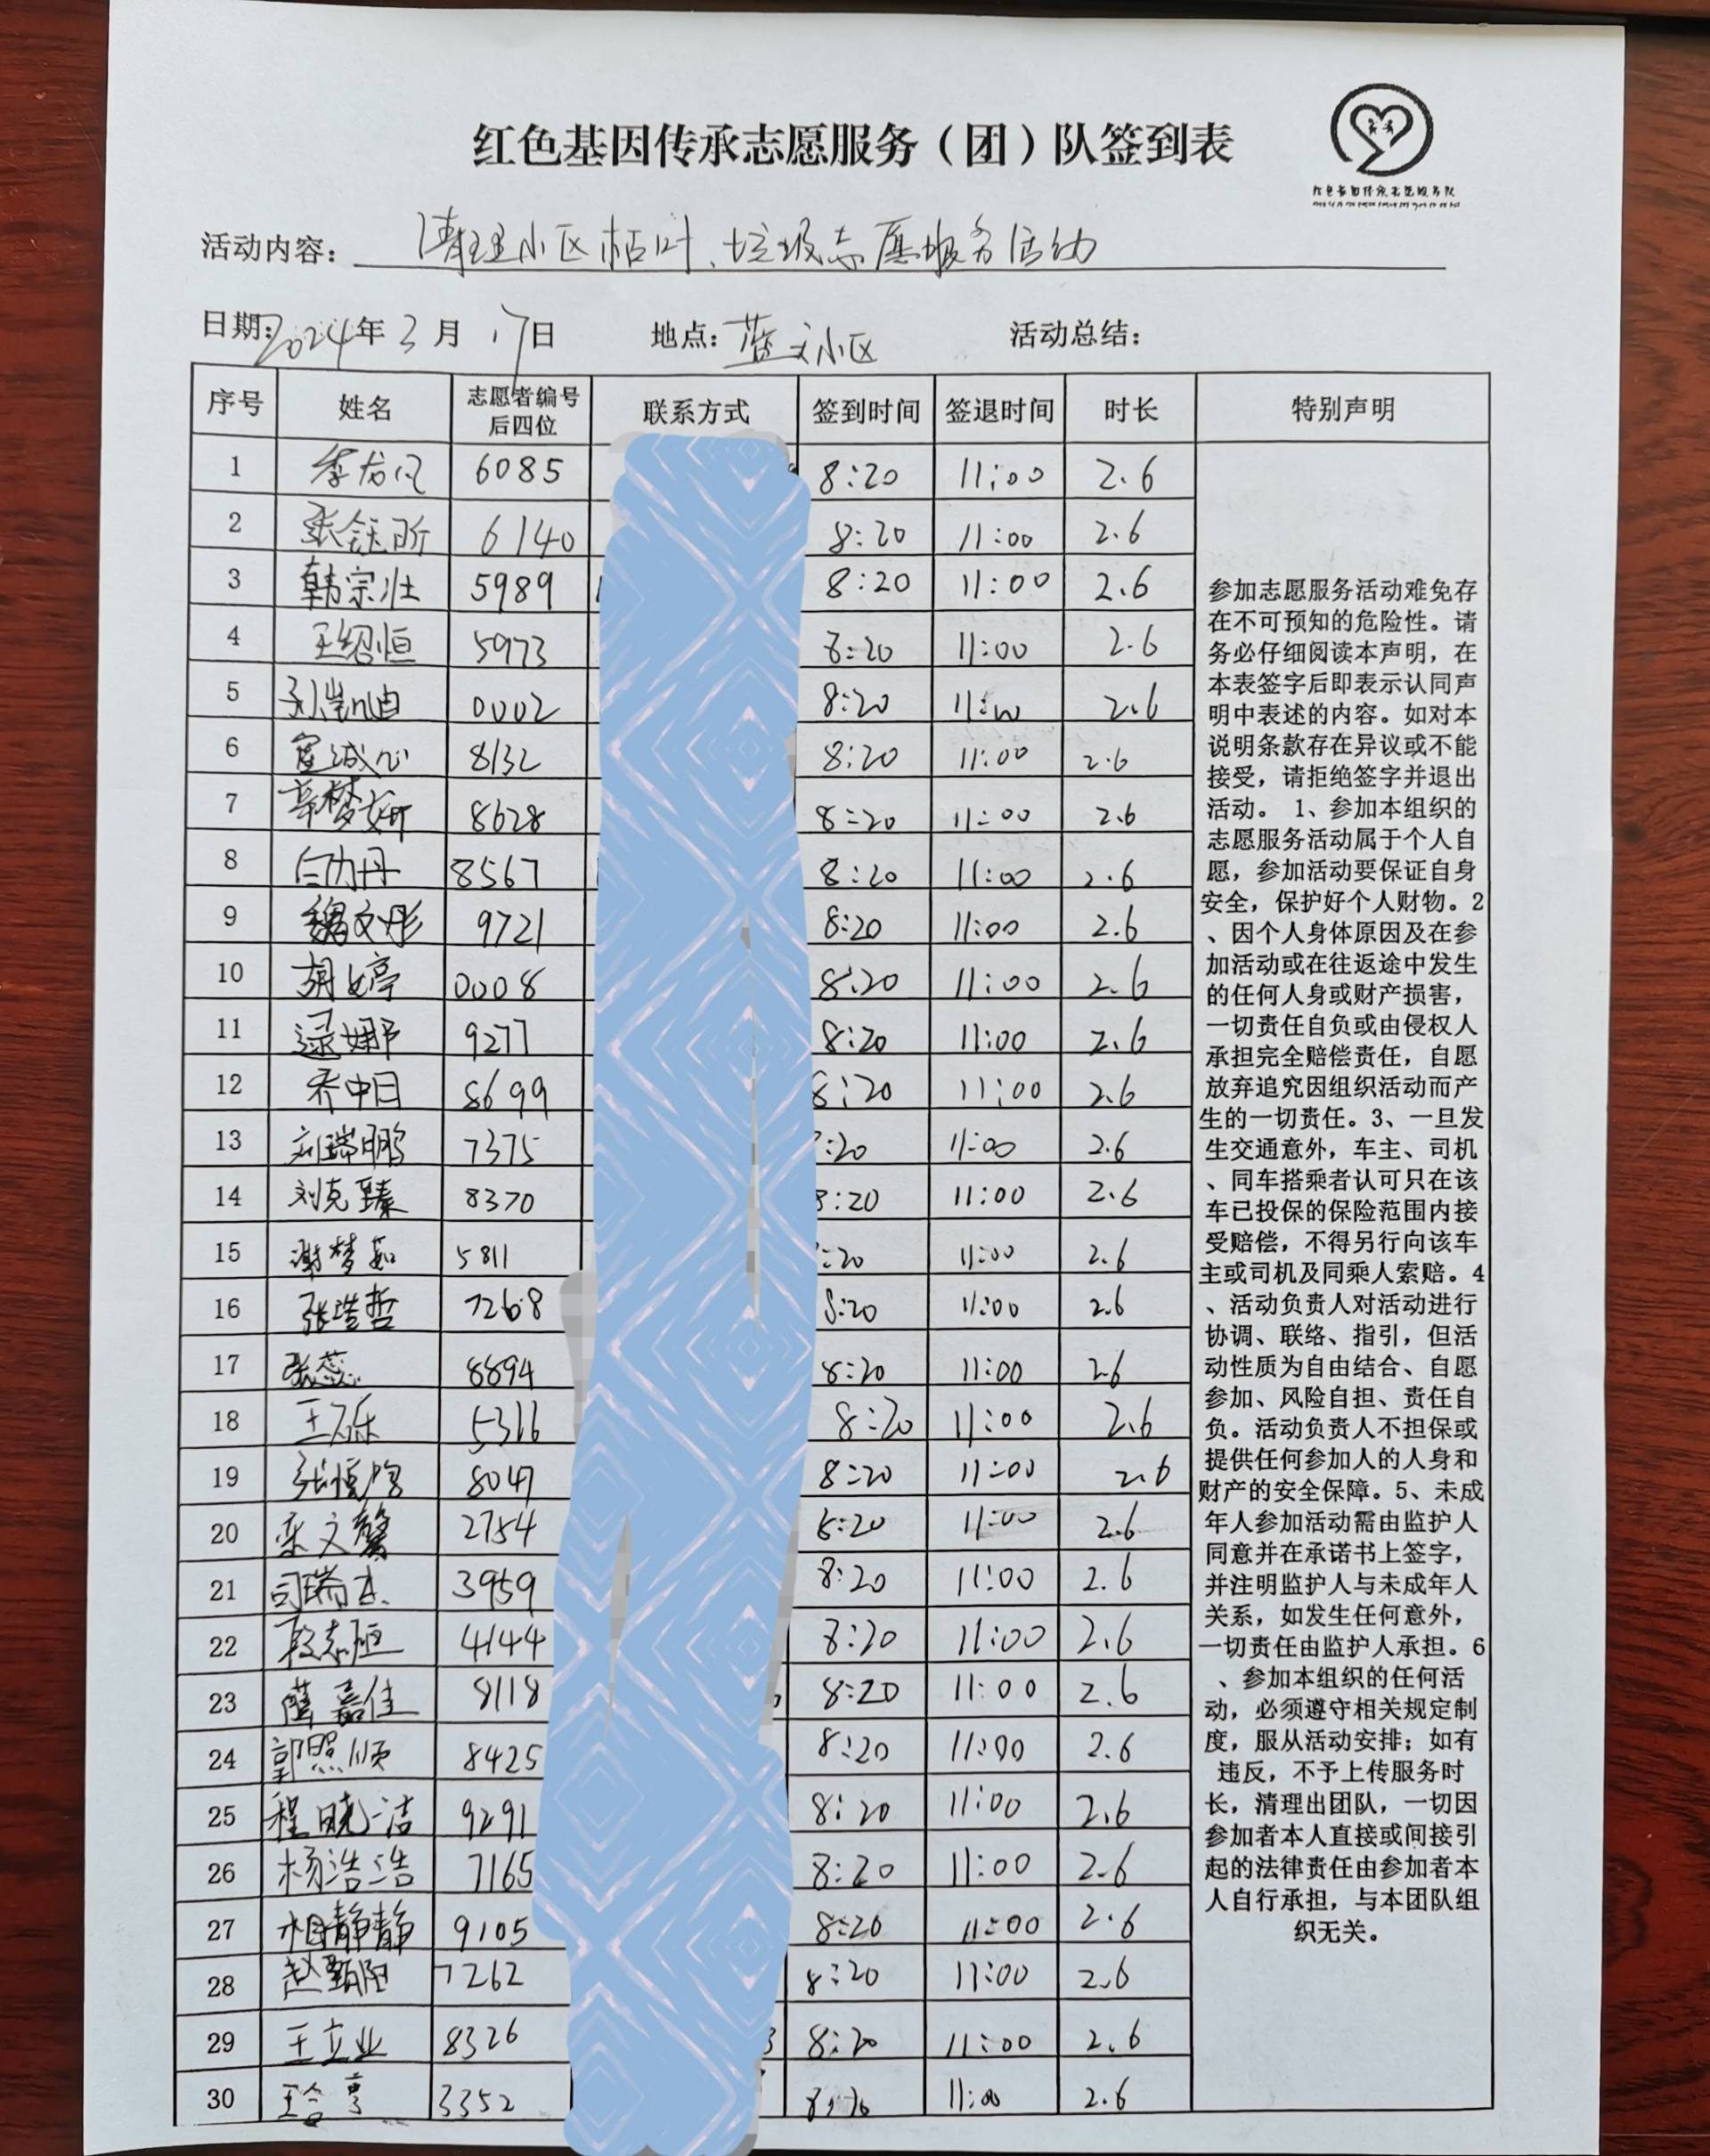 红色基因传承志愿服务（团）队签到表
红色基因传承志愿服务队
活动内容： 清理小区枯叶、垃圾志愿服务活动
日期：2024年3月17日 地点：蓝文小区 活动总结：
序号 姓名 志愿者编号后四位 联系方式 签到时间 签退时间 时长 特别声明
1 李龙凡 6085 8:20 11:00 2.6
2 张钰昕 6140 8:20 11:00 2.6
3 韩宗壮 5989 8:20 11:00 2.6
4 王绍恒 5973 8:20 11:00 2.6
5 凯迪 0002 8:20 11:00 2.6
6 诚心 8132 8:20 11:00 2.6
7 章梦妍 8628 8:20 11:00 2.6
8 丹 8567 8:20 11:00 2.6
9 魏文彤 9721 8:20 11:00 2.6
10 胡婷 0008 8:20 11:00 2.6
11 逯娜 9277 8:20 11:00 2.6
12 乔中日 8699 8:20 11:00 2.6
13 刘瑞鹏 7375 :20 11:00 2.6
14 刘克臻 8370 8:20 11:00 2.6
15 谢梦茹 5811 :20 11:00 2.6
16 张浩哲 7268 8:20 11:00 2.6
17 张蕊 8894 8:20 11:00 2.6
18 王乐 5316 8:20 11:00 2.6
19 张恒 8047 8:20 11:00 2.6
20 栾文馨 2754 8:20 11:00 2.6
21 司瑞杰 3959 8:20 11:00 2.6
22 段志恒 4144 8:20 11:00 2.6
23 薛嘉佳 8118 8:20 11:00 2.6
24 郭照顺 8425 8:20 11:00 2.6
25 程晓洁 9291 8:20 11:00 2.6
26 杨浩浩 7165 8:20 11:00 2.6
27 相静静 9105 8:20 11:00 2.6
28 赵甄阳 7262 8:20 11:00 2.6
29 王立业 8326 8:20 11:00 2.6
30 王 3352 8:20 11:00 2.6
参加志愿服务活动难免存
在不可预知的危险性。请
务必仔细阅读本声明，在
本表签字后即表示认同声
明中表述的内容。如对本
说明条款存在异议或不能
接受，请拒绝签字并退出
活动。1、参加本组织的
志愿服务活动属于个人自
愿，参加活动要保证自身
安全，保护好个人财物。2
、因个人身体原因及在参
加活动或在往返途中发生
的任何人身或财产损害，
一切责任自负或由侵权人
承担完全赔偿责任，自愿
放弃追究因组织活动而产
生的一切责任。3、一旦发
生交通意外，车主、司机
、同车搭乘者认可只在该
车已投保的保险范围内接
受赔偿，不得另行向该车
主或司机及同乘人索赔。4
、活动负责人对活动进行
协调、联络、指引，但活
动性质为自由结合、自愿
参加、风险自担、责任自
负。活动负责人不担保或
提供任何参加人的人身和
财产的安全保障。5、未成
年人参加活动需由监护人
同意并在承诺书上签字，
并注明监护人与未成年人
关系，如发生任何意外，
一切责任由监护人承担。6
、参加本组织的任何活
动，必须遵守相关规定制
度，服从活动安排；如有
违反，不予上传服务时
长，清理出团队，一切因
参加者本人直接或间接引
起的法律责任由参加者本
人自行承担，与本团队组
织无关。